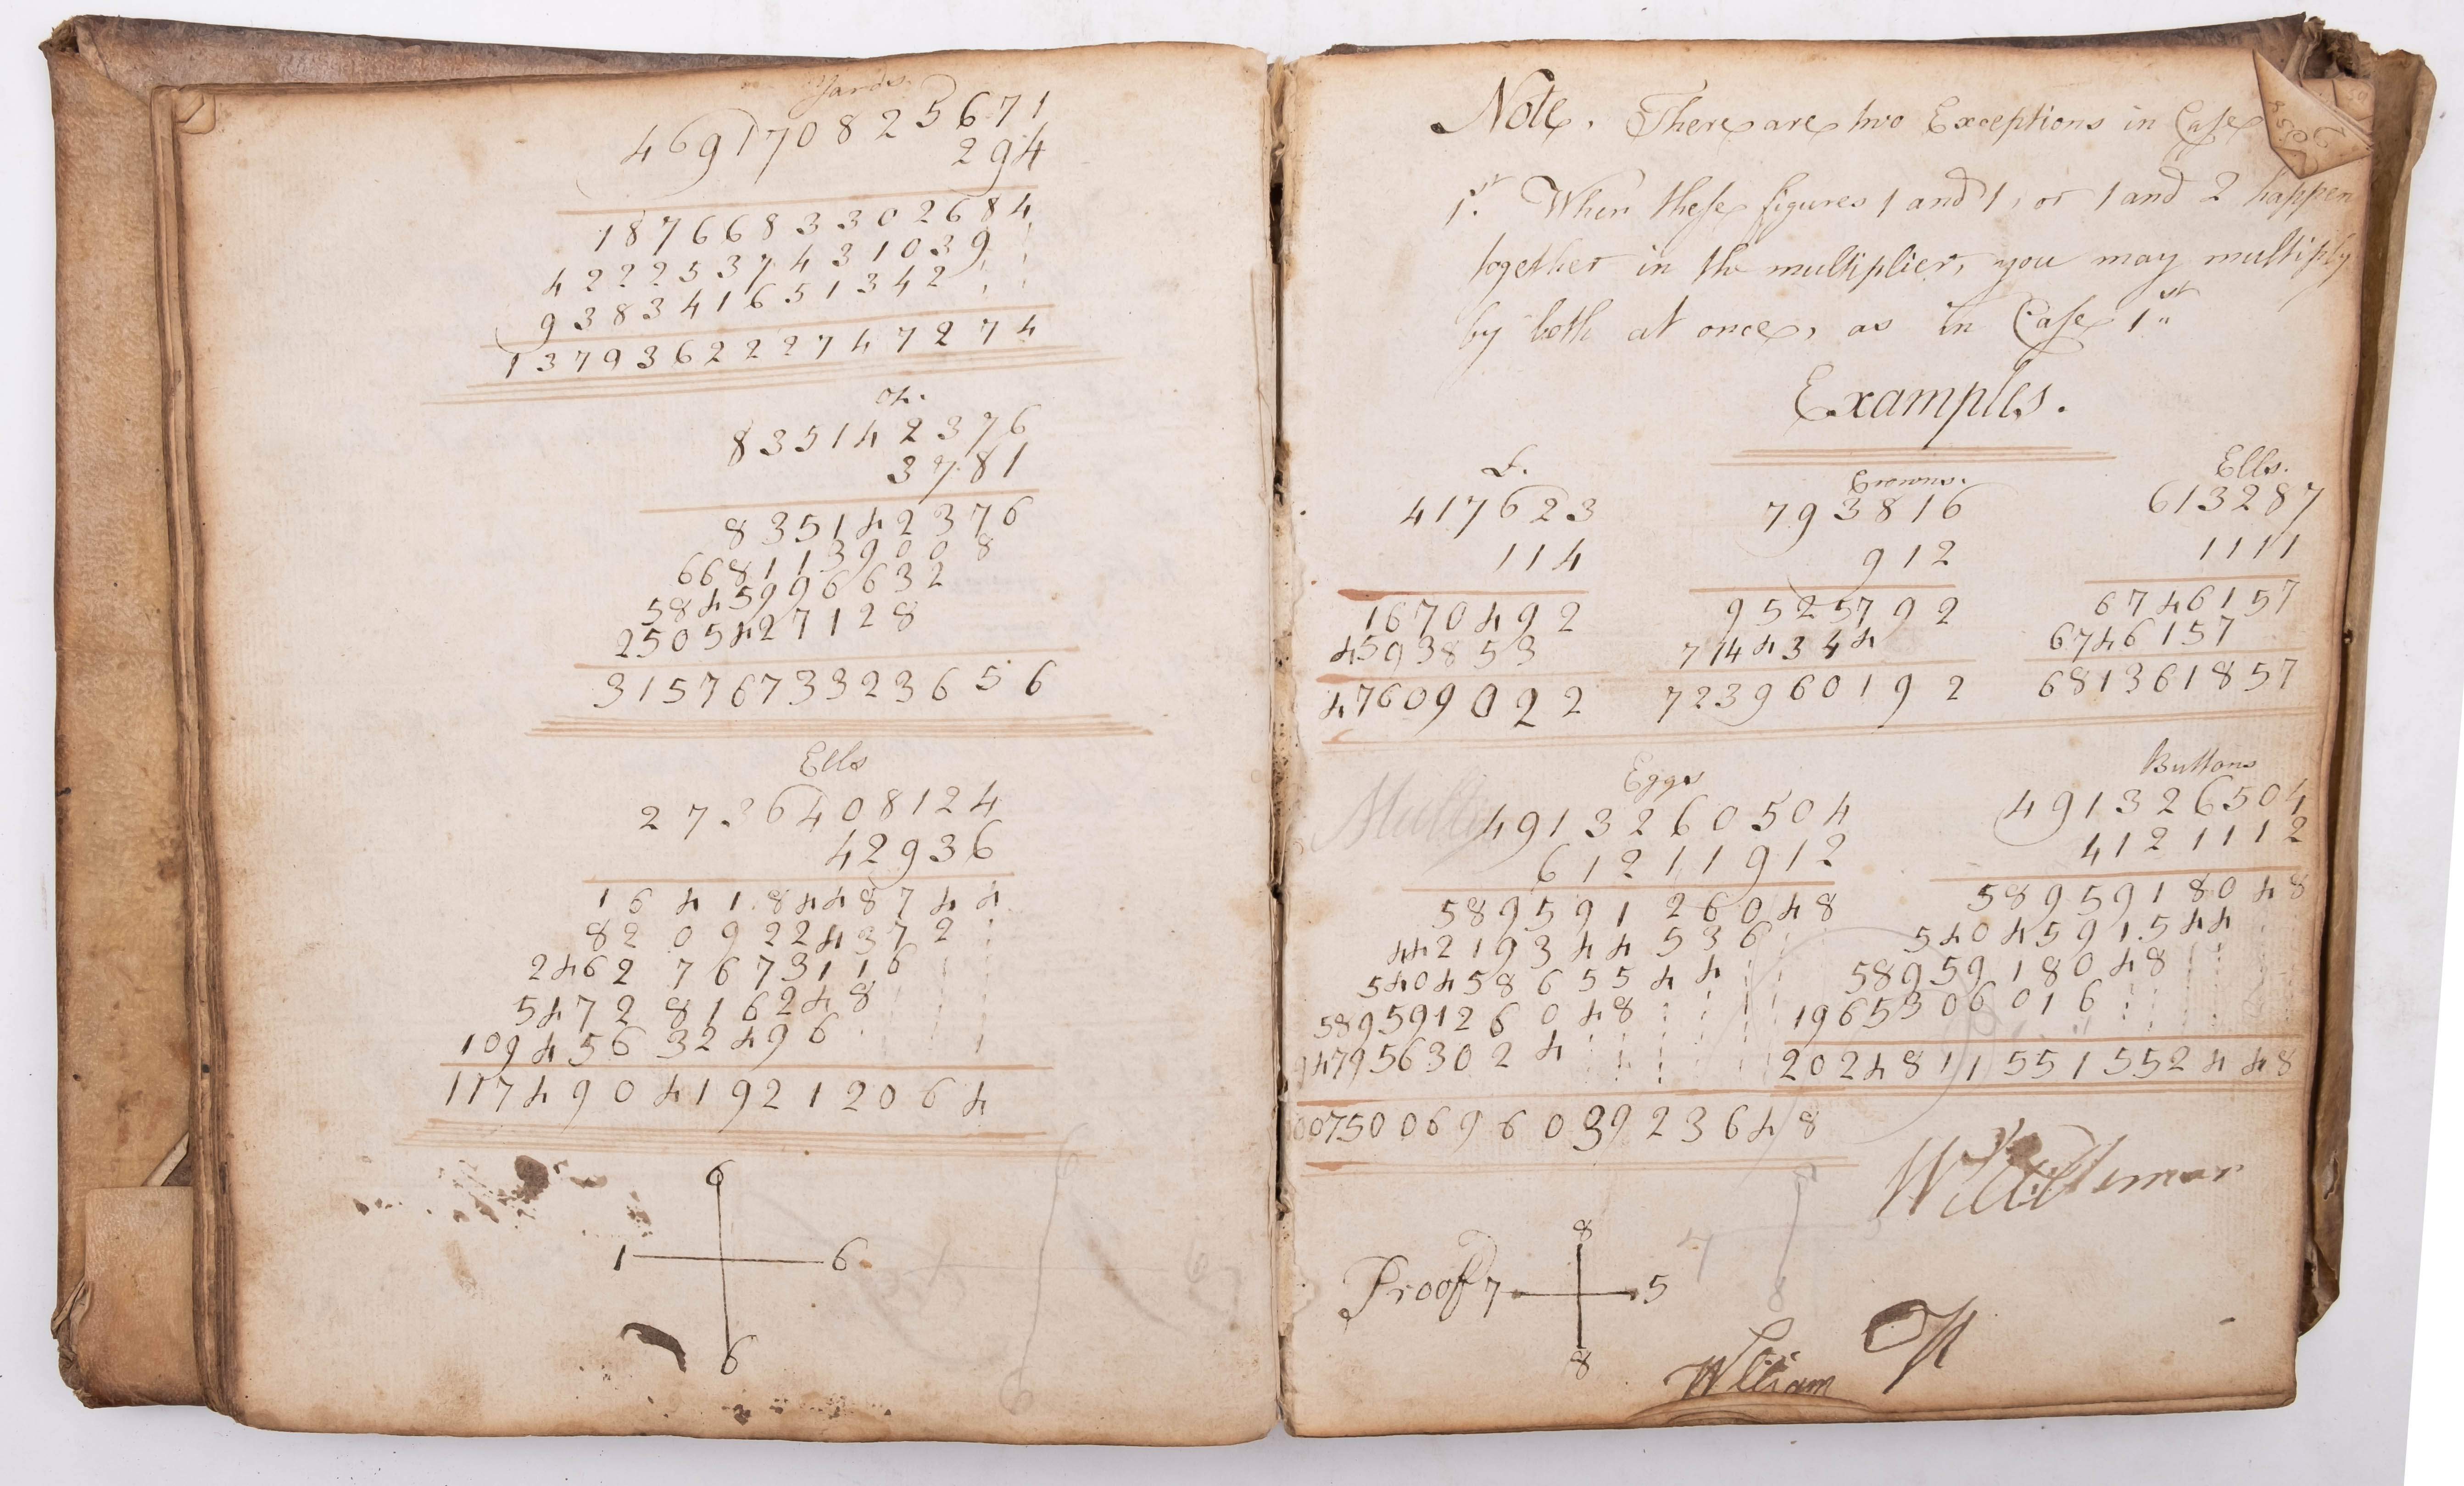 Yards.
469170825671
294
1876683302684
4222537431039
938341651342
137936222747274
835142376
3781
835142376
6681139008
5845996632
2505427128
3157673323656
Ells
2736408124
42936
16418448744
8209224372
24627673116
5472816248
10945632496
117490419212064
6
1 6
6
Note. There are two Exceptions in Case
1st. When these figures 1 and 1, or 1 and 2 happen
together in the multiplier, you may multiply
by both at once, as in Case 1st
Examples.
£. Crowns. Ells.
417623 793816 613287
114 912 1111
1670492 9525792 6746157
4593853 7144344 6746157
47609022 723960192 681361857
Eggs
4913260504
61211912
58959126048
44219344536
54045865544
58959126048
9479563024
00750069603923648
Buttons
491326504
4121112
5895918048
5404591544
5895918048
1965306016
2024811551552448
8
Proof 7 5
8
William